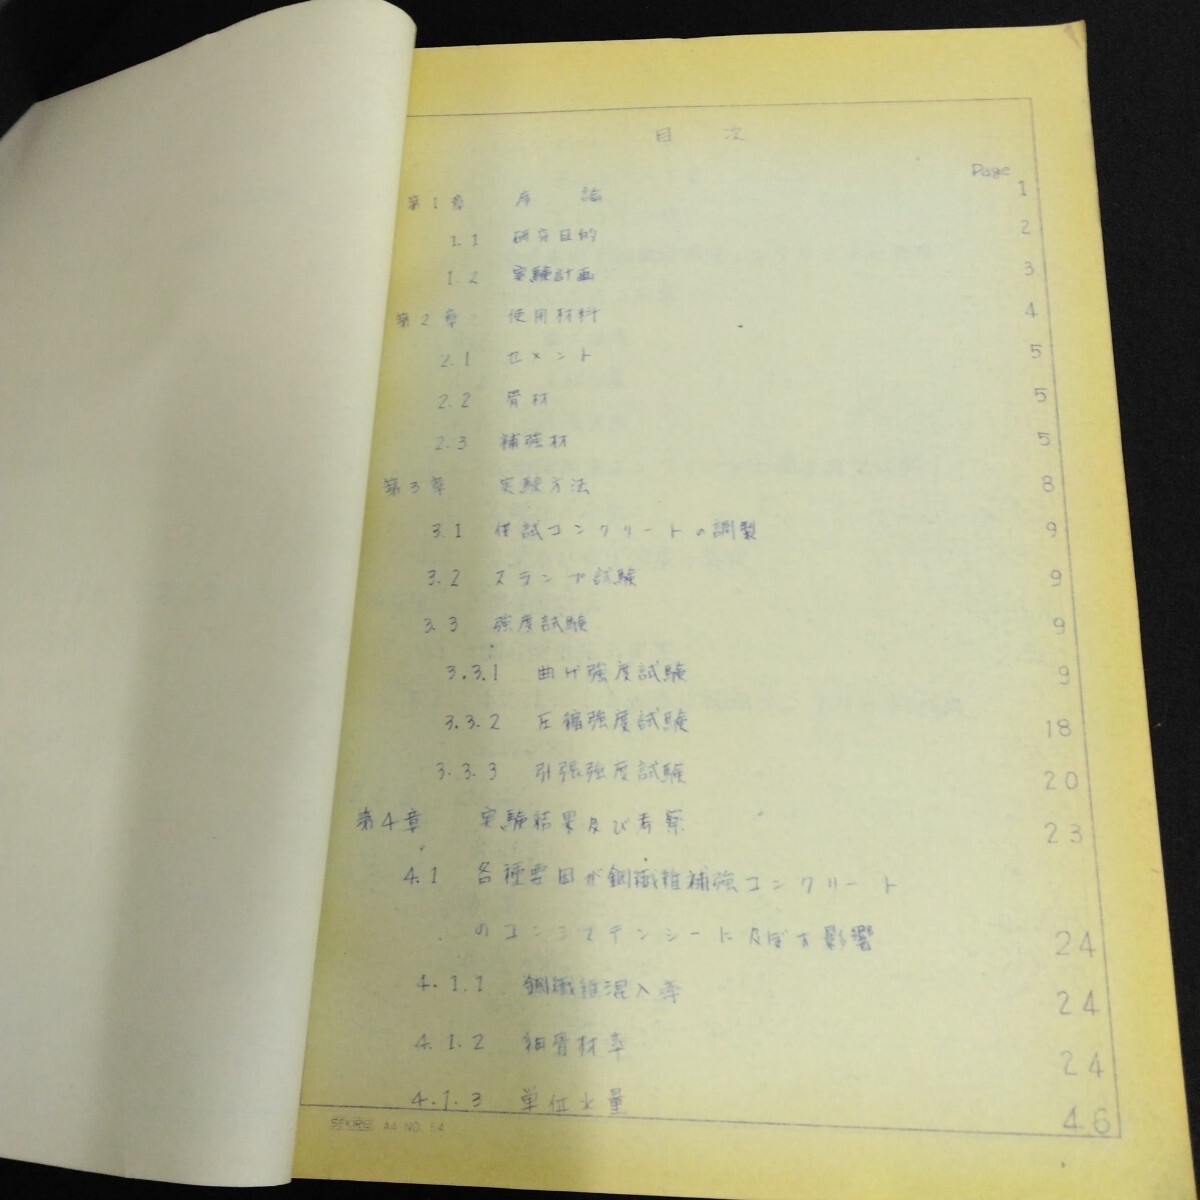 目　次
Page
第1章　序　論　1
1.1　研究目的　2
1.2　実験計画　3
第2章　使用材料　4
2.1　セメント　5
2.2　骨材　5
2.3　補強材　5
第3章　実験方法　8
3.1　供試コンクリートの調製　9
3.2　スランプ試験　9
3.3　強度試験　9
3.3.1　曲げ強度試験　9
3.3.2　圧縮強度試験　18
3.3.3　引張強度試験　20
第4章　実験結果及び考察　23
4.1　各種要因が鋼繊維補強コンクリート
のコンシステンシーに及ぼす影響　24
4.1.1　鋼繊維混入率　24
4.1.2　細骨材率　24
4.1.3　単位水量　46
SEKREI A4 NO. 54